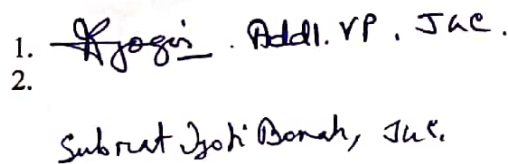 1. Jyogis. Addl. VP. Jue.
2.
Subrat Jyoti Borah, Jue.